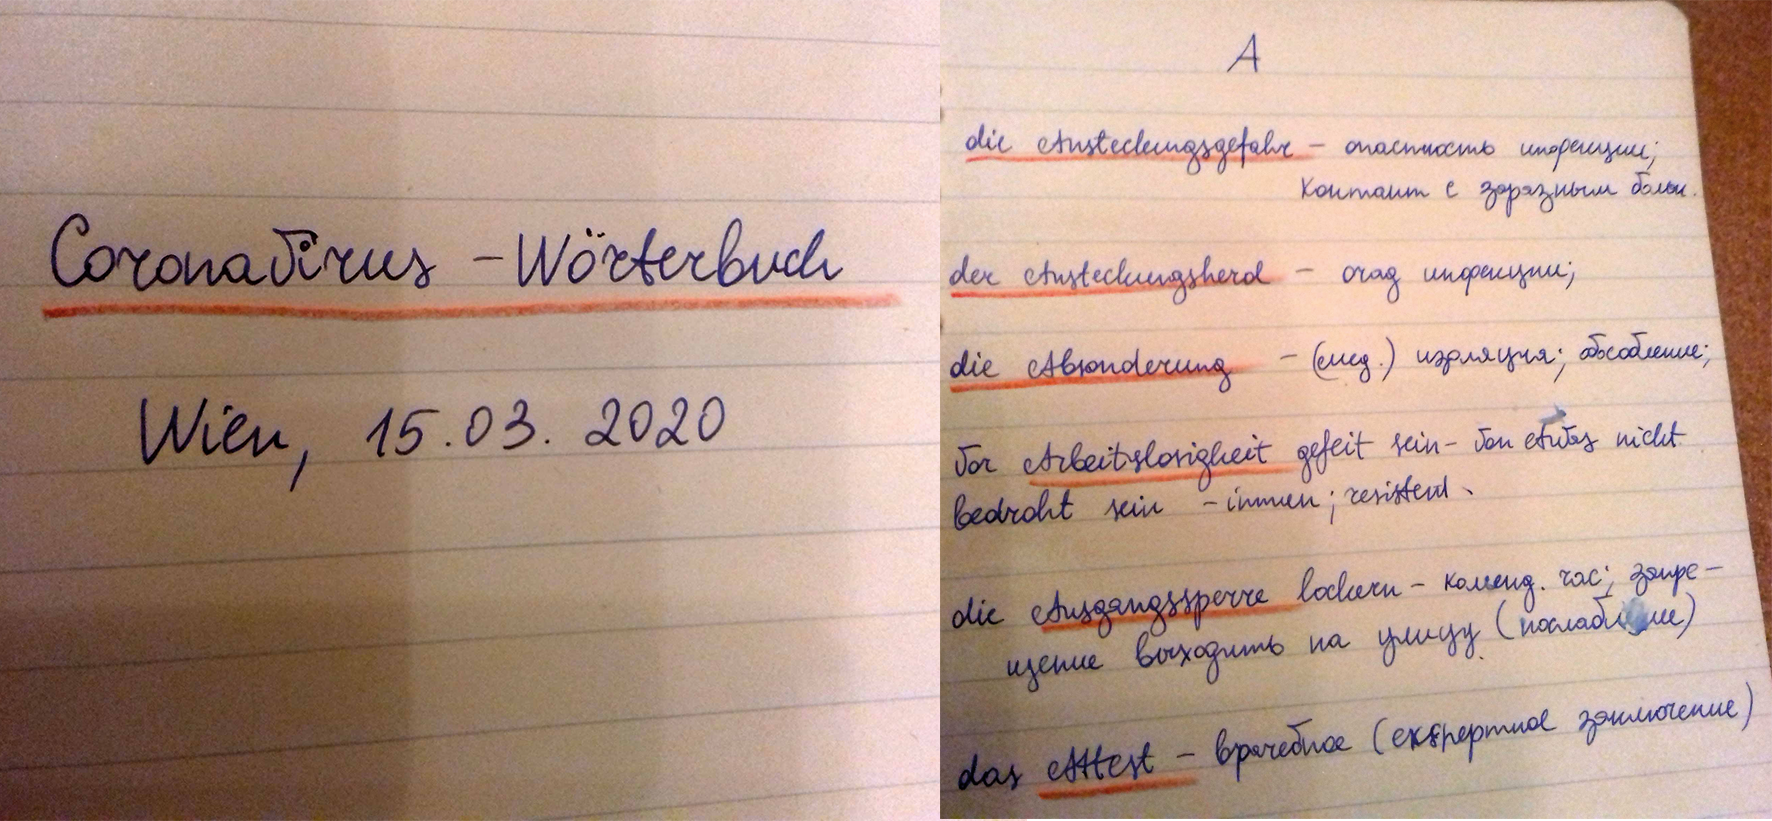 Coronavirus - Wörterbuch
Wien, 15.03. 2020
A
die Ansteckungsgefahr - опастность инфекции;
контакт с заразным больн.
der Ansteckungsherd - очаg инфекции;
die Absonderung - (меg.) изоляция; обособление;
vor Arbeitslosigkeit gefeit sein - von etwas nicht
bedroht sein - immun; resistent.
die Ausgangssperre lockern - коменд. час; запре-
щение выходить на улицу (послабление)
das Attest - врачебное (експертное заключение)